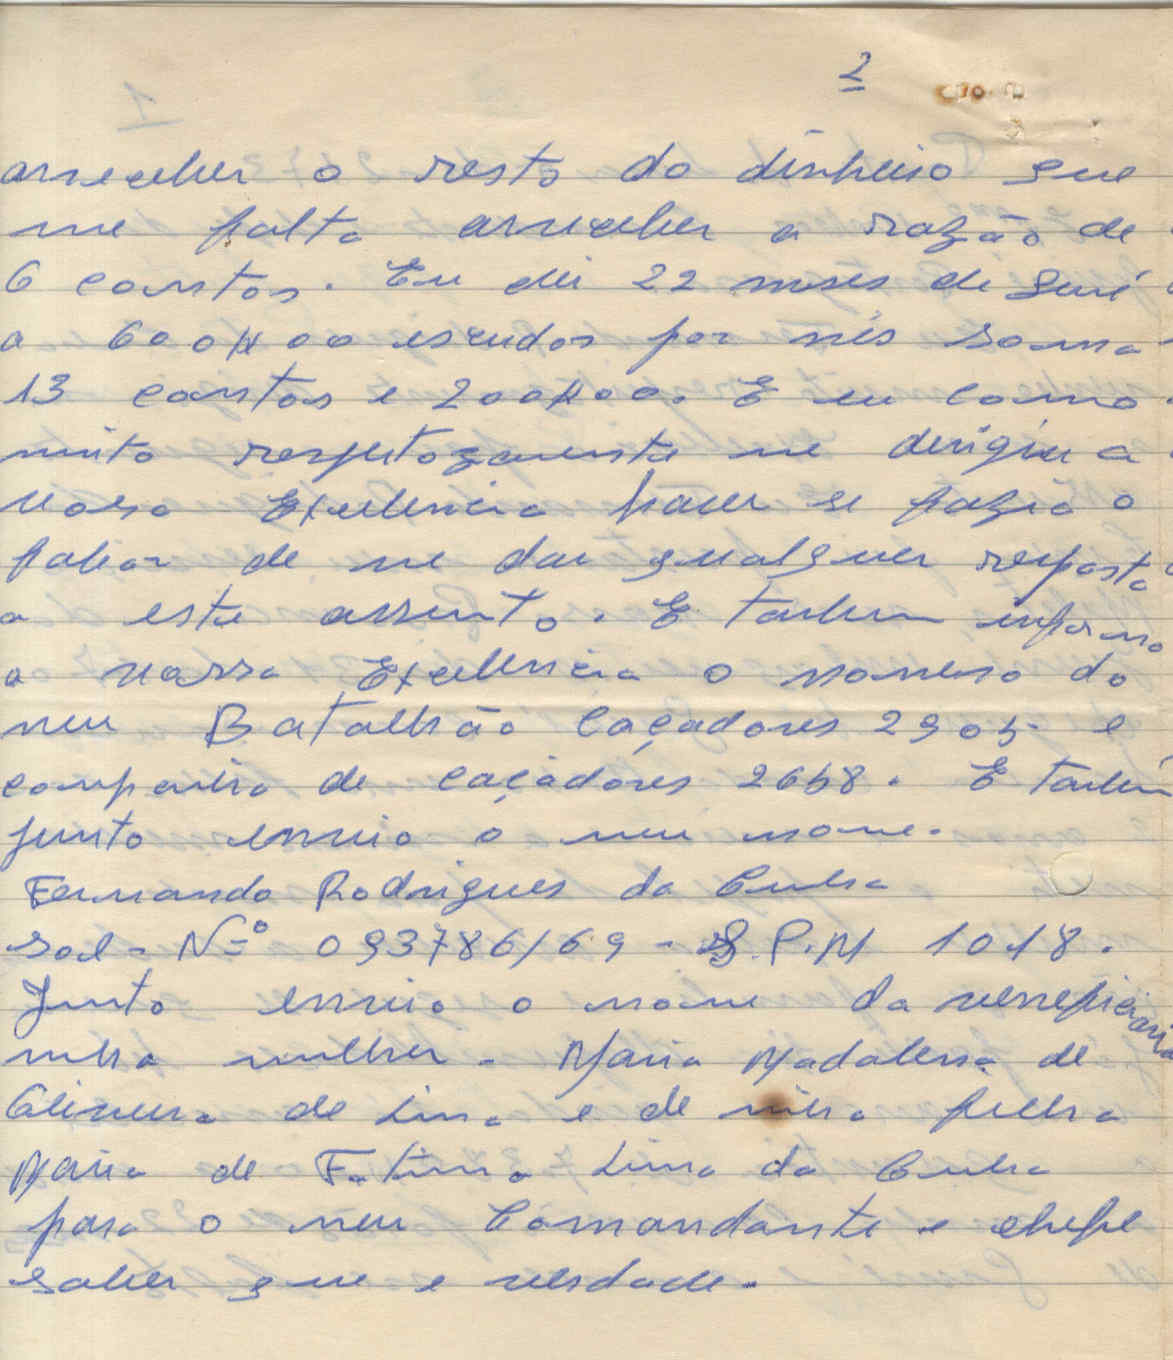 2
arreceber o resto do dinheiro que
me falta arreceber a razão de
6 contos. Eu dei 22 mses de Guié
a 600$00 escudos por mês soma
13 contos e 200$00. E eu como
muito respeitozamente me dirigiu a
vosa Exelencia fazer se fazia o
fabor de me dar qualquer resposta
a este assunto. E tanbem informo
a vossa Exelencia o nomero do
meu Batalhão Caçadores 2905 e
companhia de caçadores 2658. E tanbém
junto envio o meu nome.
Fernando Rodrigues da Cunha
sol- Nº 093786/69 - S.P.M 1018.
Junto envio o nome da veneficiaria
minha mulher - Maria Madalena de
Oliveira de Lima e de minha filha
Maria de Fatima Lima da Cunha
para o meu Comandante e chefe
saber que e verdade.